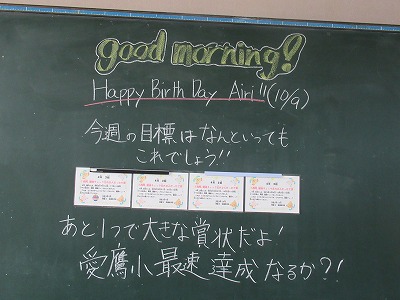 good morning!
Happy Birth Day Airi!!(10/9)
今週の目標はなんといっても
これでしょう!!
あと1つで大きな賞状だよ!
愛鷹小最速達成なるか?!